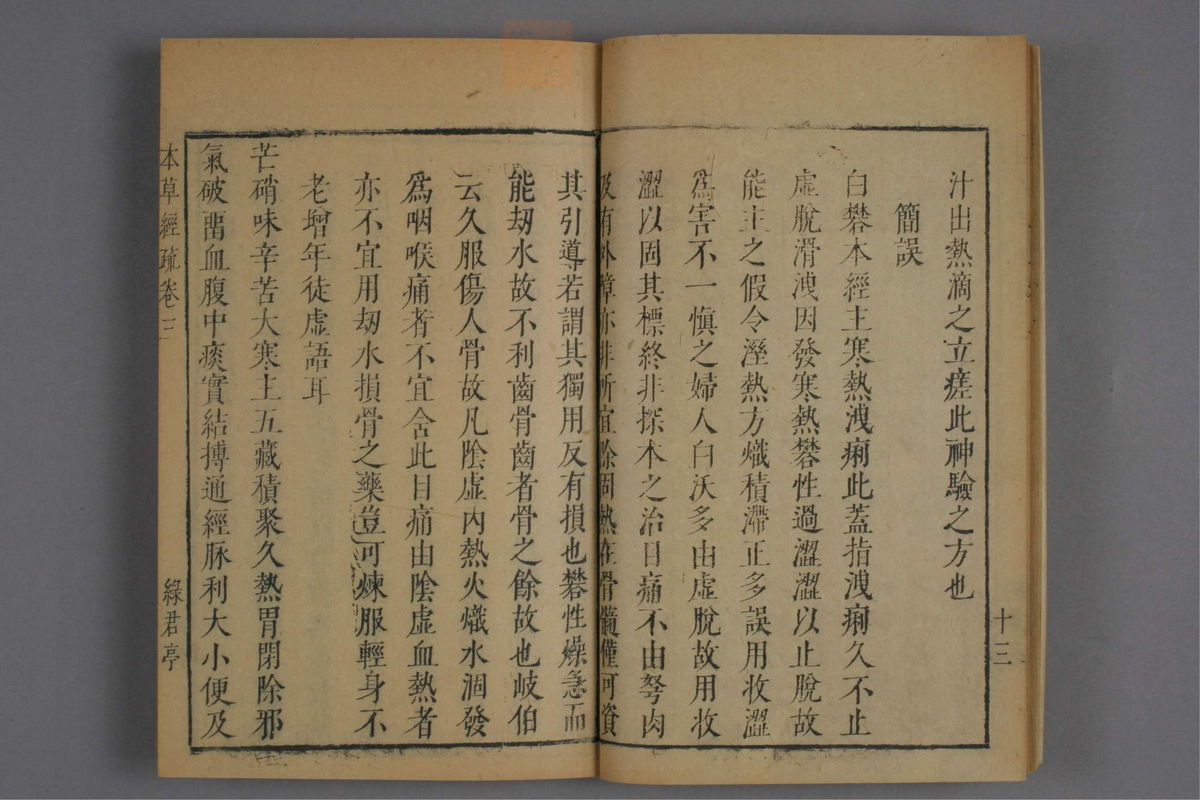 汁出熱滴之立瘥此神驗之方也
簡誤
白礬本經主寒熱洩痢此蓋指洩痢久不止
虛脫滑洩因發寒熱礬性過澀澀以止脫故
能主之假令溼熱方熾積滯正多誤用收澀
爲害不一愼之婦人白沃多由虛脫故用收
澀以固其標終非探本之治目痛不由胬肉
及有外障亦非所宜除固熱在骨髓僅可資
其引導若謂其獨用反有損也礬性燥急而
能劫水故不利齒骨齒者骨之餘故也岐伯
云久服傷人骨故凡陰虛內熱火熾水涸發
爲咽喉痛者不宜含此目痛由陰虛血熱者
亦不宜用劫水損骨之藥豈可煉服輕身不
老增年徒虛語耳
芒硝味辛苦大寒主五藏積聚久熱胃閉除邪
氣破畱血腹中痰實結搏通經脉利大小便及
本草經疏卷三
綠君亭
十三